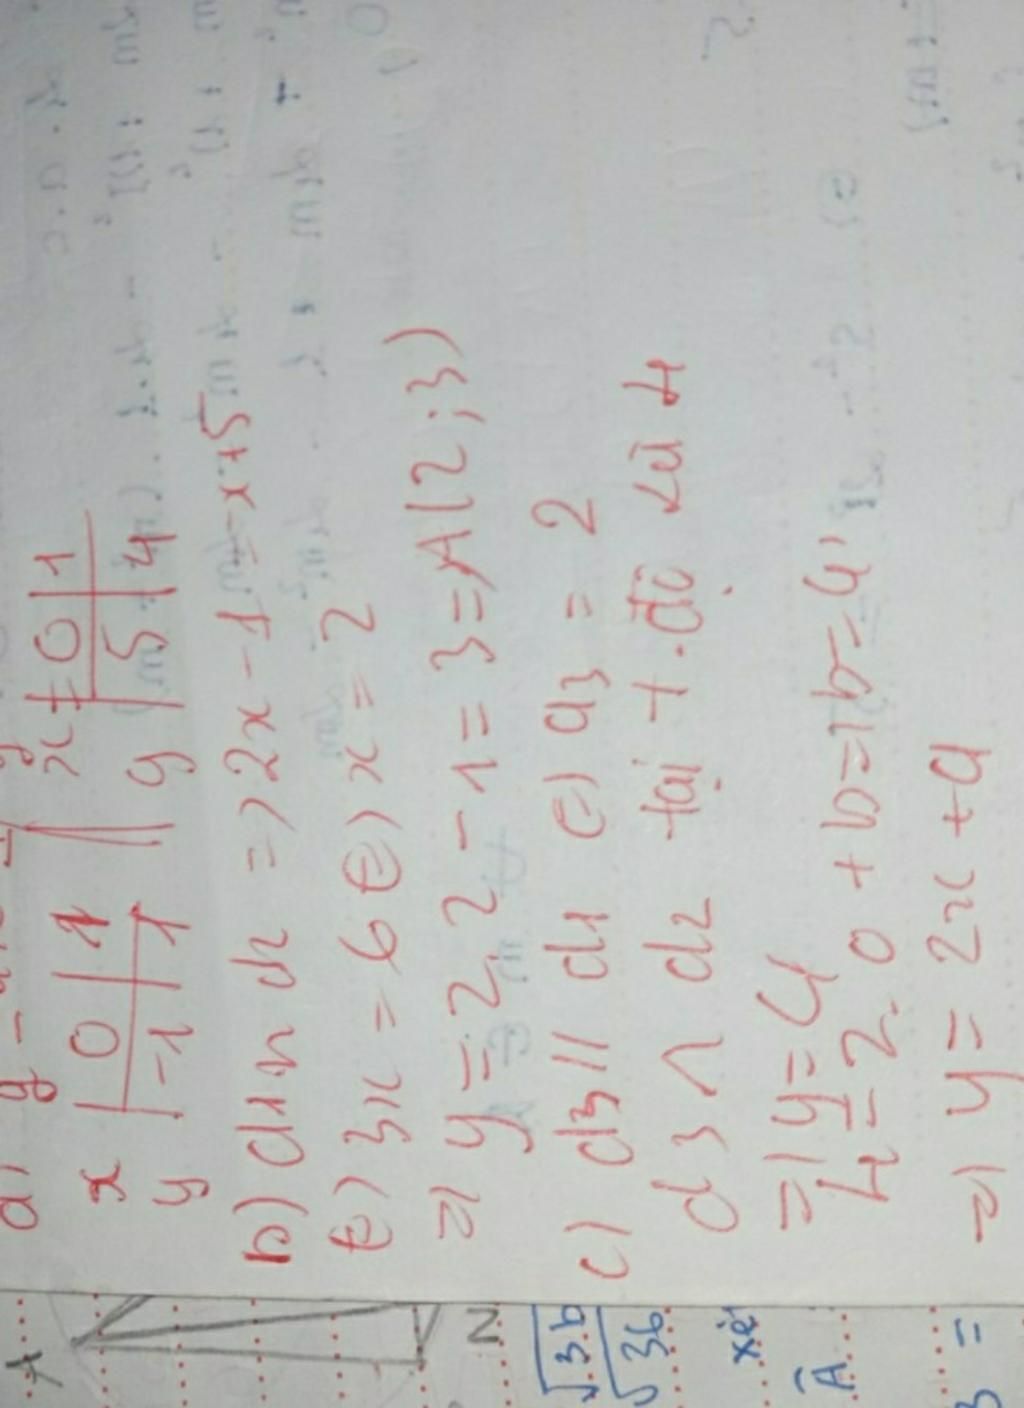 x | 0 | 1 || x | 0 | 1
y | -1 | 1 || y | 5 | 4
b) d1 ∩ d2 => 2x - 1 = -x + 5
(=) 3x = 6 (=) x = 2
=) y = 2.2 - 1 = 3 => A(2;3)
c) d3 // d1 (=) a3 = 2
d3 ∩ d2 tại t.độ là 4
=) y = 4
4 = 2.0 + b => b = 4
=) y = 2x + 4
A
N
√36
√36
xét
A
3 =